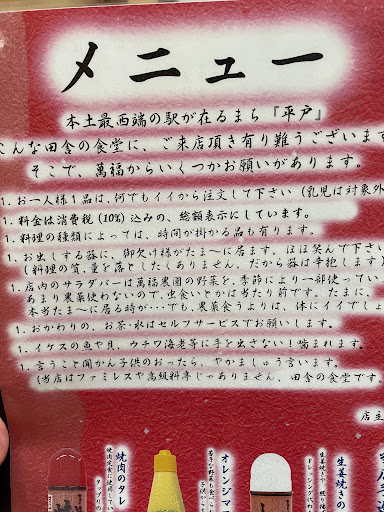 メニュー
本土最西端の駅が在るまち『平戸』
こんな田舎の食堂に、ご来店頂き有り難うございます
そこで、萬福からいくつかお願いがあります。
1. お一人様1品は、何でもイイから注文して下さい (乳児は対象外
1. 料金は消費税 (10%) 込みの、総額表示にしています。
1. 料理の種類によっては、時間が掛かる品も有ります。
1. お出しする器に、御欠け様がたま〜に居ます。ほほ笑んで下さい
(料理の質、量を落としたくありません、だから器は辛抱します)
1. 店内のサラダバーは萬福農園の野菜を、季節により一部使ってい
あまり農薬使わないので、虫食いとかは当たり前です。たまに、
本当たま〜に居る時が・・でも、農薬食うよりは、体にイイでしょ
1. おかわりの、お茶・水はセルフサービスでお願いします。
1. イケスの魚や貝、ウチワ海老等に手を出さない！噛まれます。
1. 言うこと聞かん子供のおったら、やかましゅう言います。
(当店はファミレスや高級料亭じゃありません、田舎の食堂です
店主
焼肉のタレ
オレンジマ
生姜焼きの